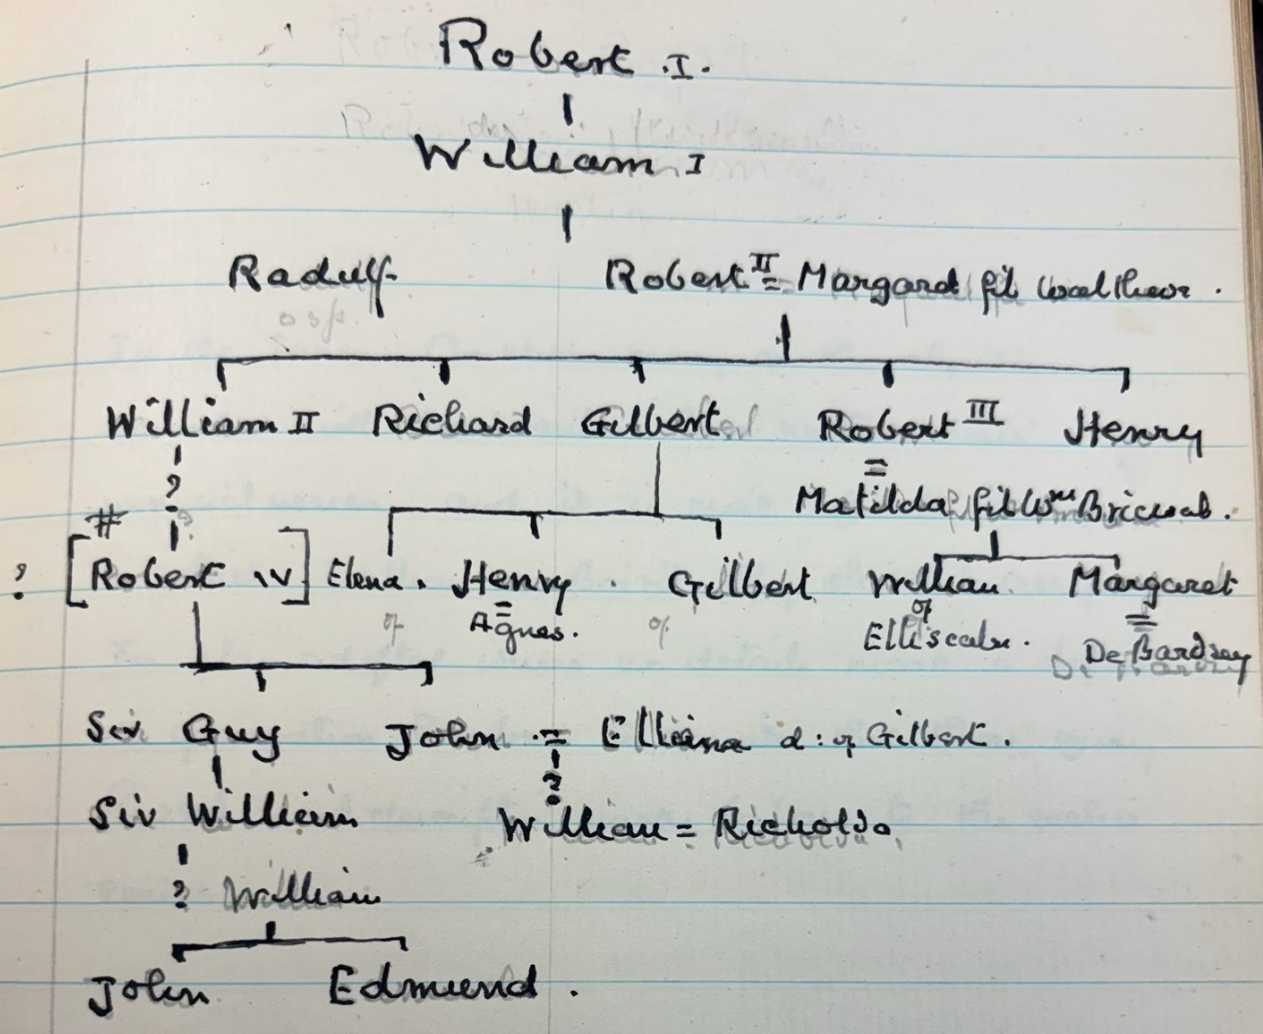 Robert .I.
William I
Radulf Robert II = Margard fil Waltheor .
osp.
William II Richard Gilbert Robert III Henry
?
=
# Matilda fil Wm Briewab .
? [Robert IV] Elena . Henry . Gilbert William Margaret
of = of of =
Agnes . Elliscalu . De Bardsey
Sir Guy John = Elliana d: of Gilbert .
?
Sir William William = Richolda
? William
John Edmund .